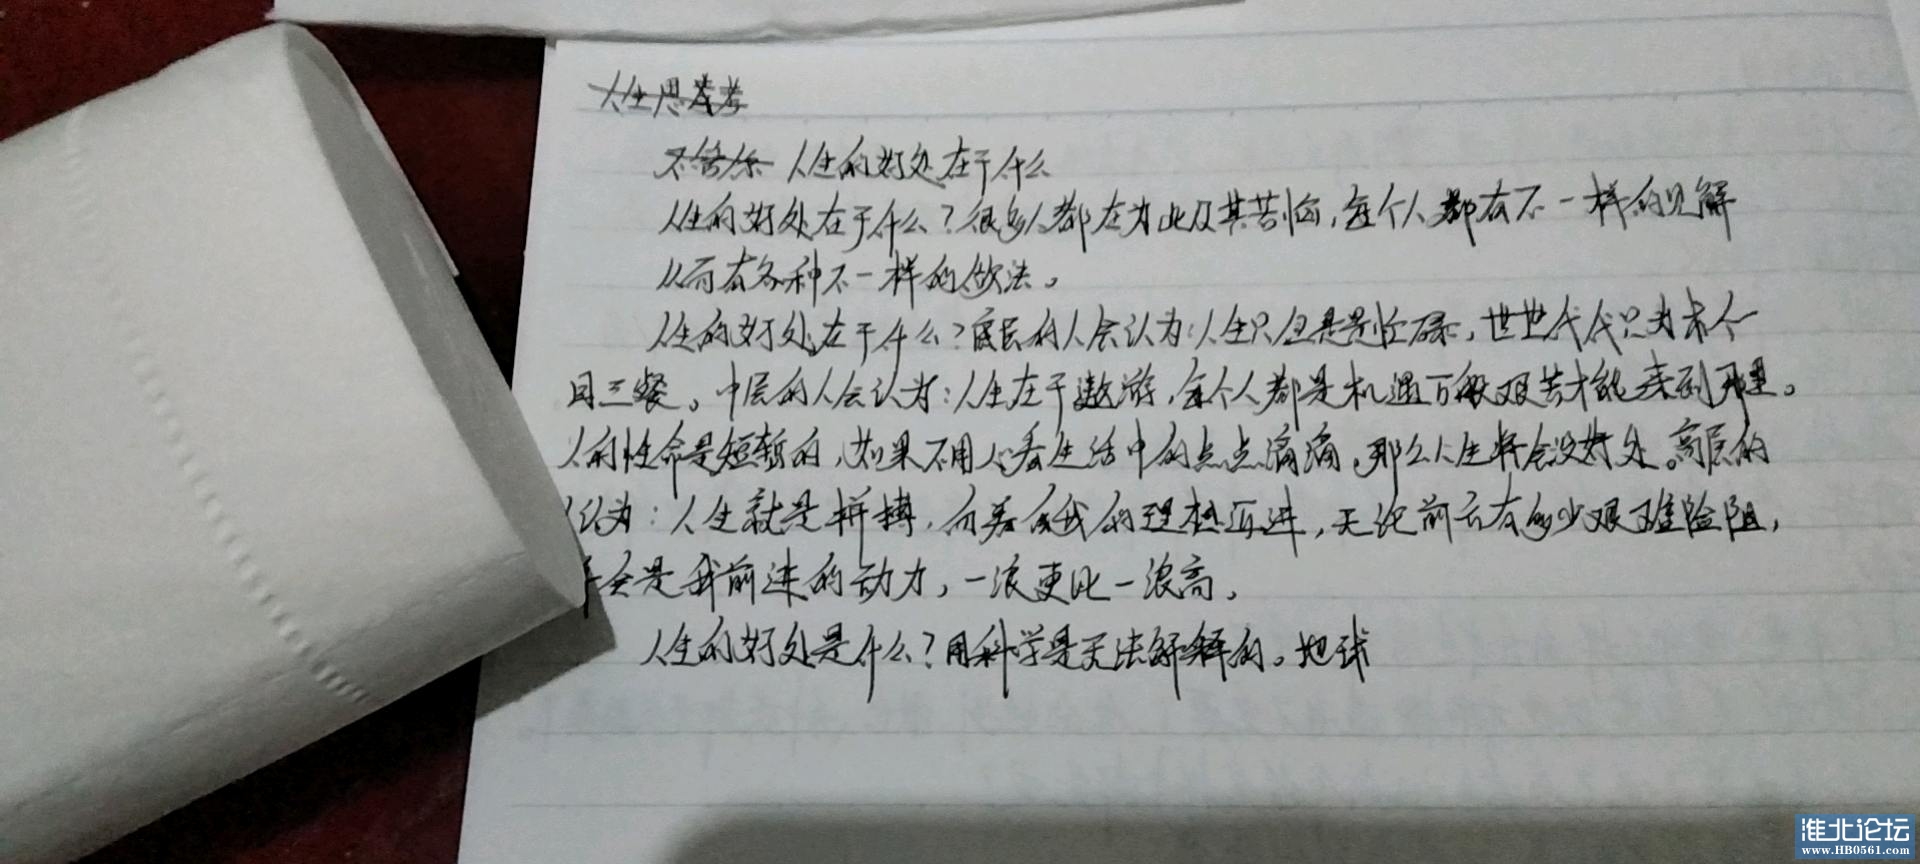 人生思考
不告你 人生的好处在于什么
人生的好处在于什么？很多人都在为此及其苦恼，每个人都有不一样的见解
从而有各种不一样的做法。
人生的好处在于什么？底层的人会认为：人生只但是是忙碌，世世代代只为求个
目三餐。中层的人会认为：人生在于遨游，每个人都是机遇万般艰苦才能来到那里。
人的性命是短暂的，如果不用心看生活中的点点滴滴，那么人生将会没好处。高层的
认为：人生就是拼搏，向着我的理想迈进，无论前方有多少艰难险阻，
会是我前进的动力，一浪更比一浪高。
人生的好处是什么？用科学是无法解释的。地球
淮北论坛
www.HB0561.com